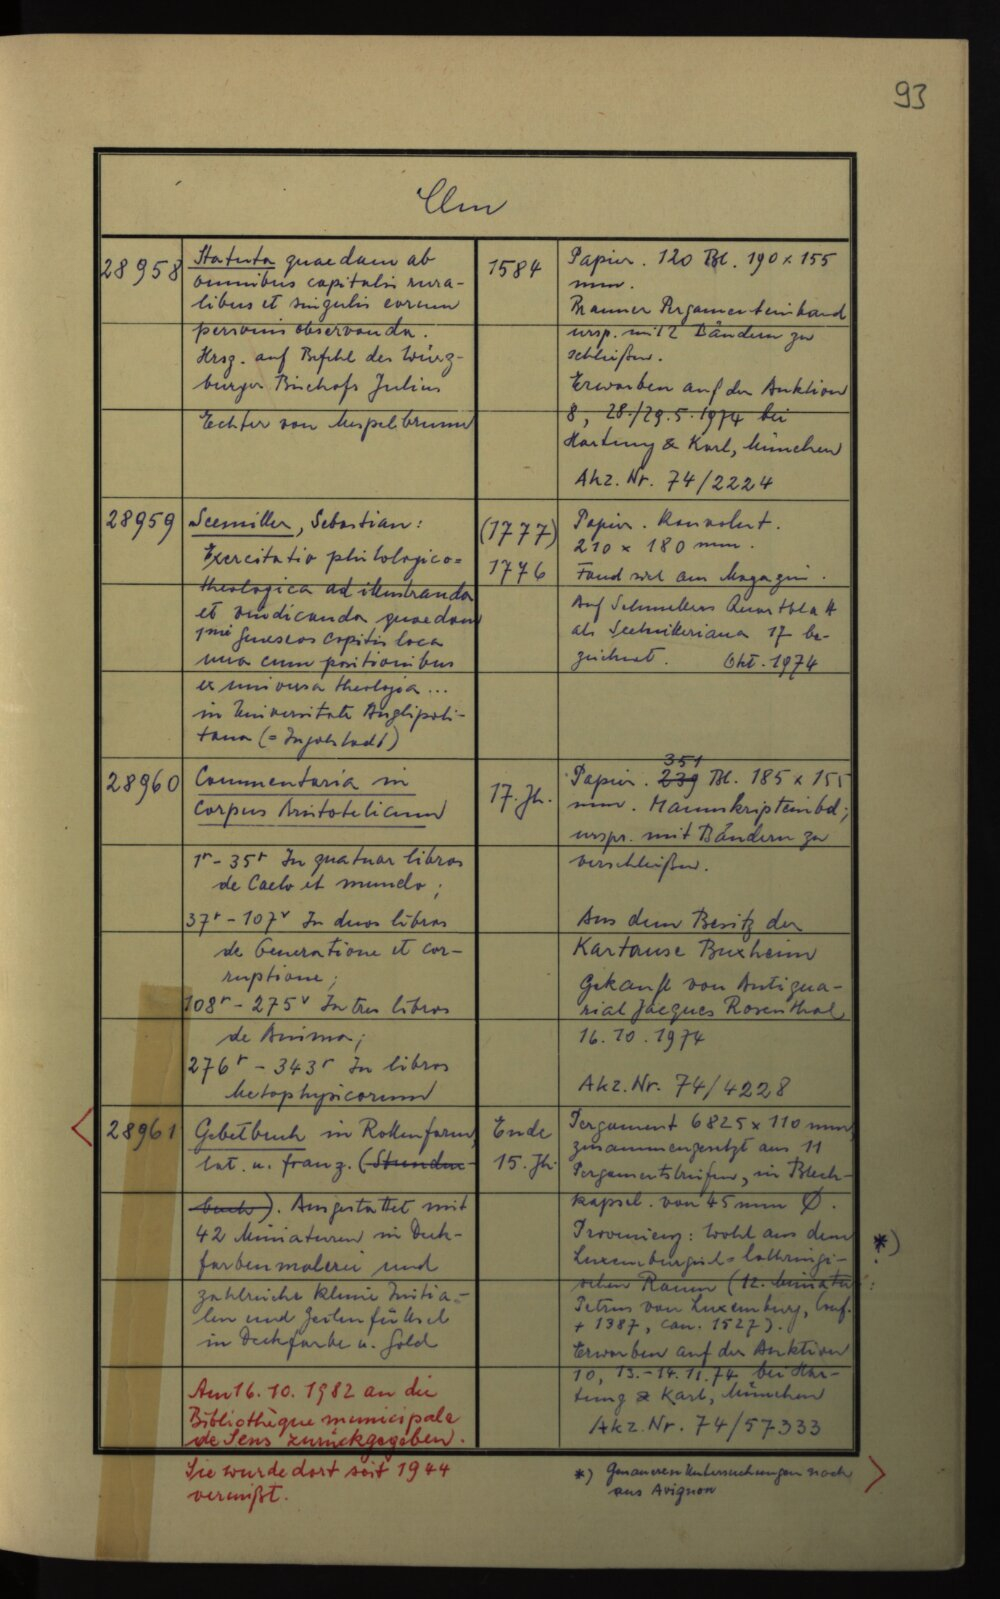 93
Clm
28958
Statuta quaedam ab
omnibus capitulis rura-
libus et singulis eorum
personis observanda.
Hrsg. auf Befehl des Würz-
burger Bischofs Julius
Echter von Mespelbrunn
1584
Papier. 120 Bl. 190 x 155
mm.
Brauner Pergamenteinband
ursp. mit 2 Bändern zu
schließen.
Erworben auf der Auktion
8, 28./29.5.1974 bei
Hartung & Karl, München
Akz. Nr. 74/2224
28959
Seemiller, Sebastian:
Exercitatio philologico=
theologica ad illustranda
et vindicanda quaedam
1mi Geneseos capitis loca
una cum positionibus
ex universa theologia ...
in Universitate Anglipoli-
tana (= Ingolstadt)
(1777)
1776
Papier. Konvolut.
210 x 180 mm.
Fand sich am Magazin.
Auf Schmellers Quartblatt
als Seemilleriana 17 be-
zeichnet. Okt. 1974
28960
Commentaria in
corpus Aristotelicum
1r - 35r In quatuor libros
de Caelo et mundo;
37r - 107v In duos libros
de Generatione et cor-
ruptione;
108r - 275v In tres libros
de Anima;
276r - 343r In libros
Metaphysicorum
17. Jh.
351
Papier. 239 Bl. 185 x 155
mm. Manuskripteinbd;
urspr. mit Bändern zu
verschließen.
Aus dem Besitz der
Kartause Buxheim
Gekauft von Antiqua-
riat Jacques Rosenthal
16.10.1974
Akz. Nr. 74/4228
28961
Gebetbuch in Rollenform,
lat. u. franz. (Stunden-
buch). Ausgestattet mit
42 Miniaturen in Deck-
farbenmalerei und
zahlreiche kleine Initia-
len und Zeilenfüllsel
in Deckfarbe u. Gold
Am 16.10.1982 an die
Bibliothèque municipale
de Sens zurückgegeben.
Sie wurde dort seit 1944
vermißt.
Ende
15. Jh.
Pergament 6825 x 110 mm,
zusammengesetzt aus 11
Pergamentstreifen, in Blech-
kapsel von 45 mm Ø.
Provenienz: wohl aus dem
Luxemburgisch-lothringi- *)
schen Raum (12. Miniatur:
Petrus von Luxemburg, Conf.
+ 1387, can. 1527).
Erworben auf der Auktion
10, 13.-14.11.74 bei Har-
tung & Karl, München
Akz. Nr. 74/57333
*) Genaueren Untersuchungen nach
aus Avignon